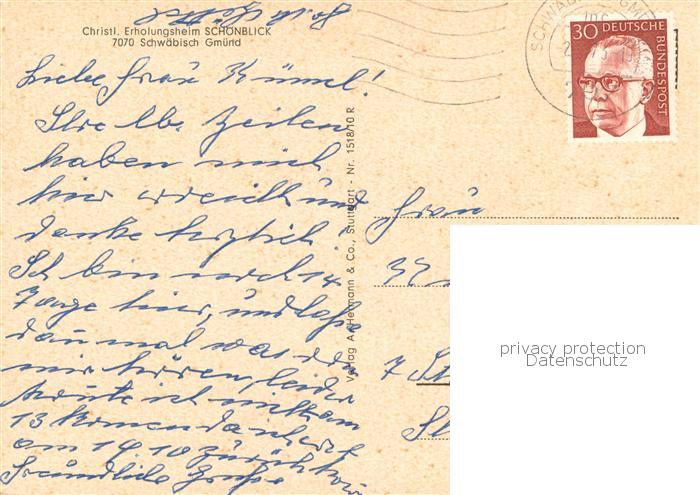 Christl. Erholungsheim SCHÖNBLICK
7070 Schwäbisch Gmünd
Liebe Frau Kümmel!
Ihre lb. Zeilen
haben mich
hier erreicht und
danke herzlich!
Ich bin noch 14
Tage hier, und lasse
dann mal was von
mir hören, leider
konnte ich nicht am
13 kommen da ich erst
am 19.10 zurück
Freundliche Grüße
Verlag A. Hermann & Co., Stuttgart - Nr. 1518/10 R
SCHWÄBISCH GMÜND
30 DEUTSCHE
BUNDESPOST
Frau
7 St
privacy protection
Datenschutz